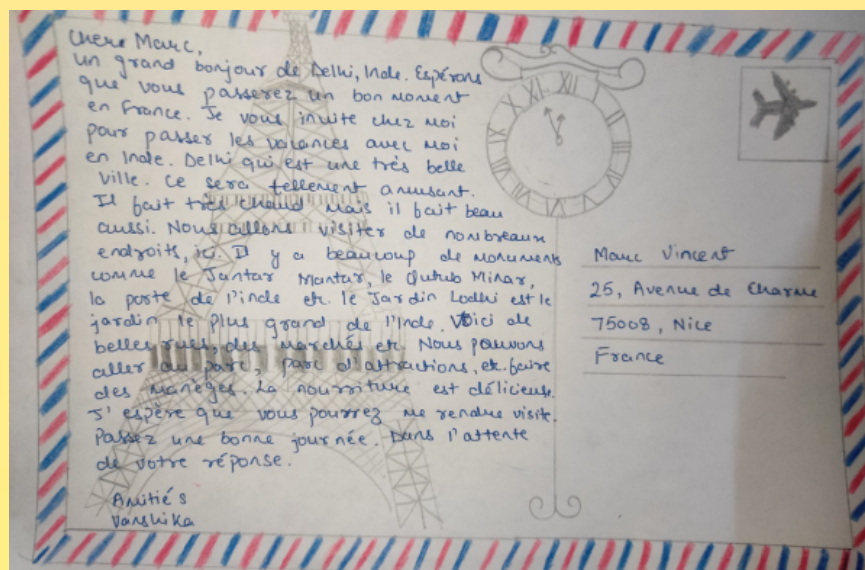 Chere Marc,
un grand bonjour de Delhi, Inde. Espérons
que vous passerez un bon moment
en France. Je vous invite chez moi
pour passer les vacances avec moi
en Inde. Delhi qui est une très belle
ville. Ce sera tellement amusant.
Il fait très chaud mais il fait beau
aussi. Nous allons visiter de nombreaux
endroits, ici. Il y a beaucoup de monuments
comme le Jantar Mantar, le Qutub Minar,
la porte de l'inde etc. le Jardin Lodhi est le
jardin le plus grand de l'Inde. Voici de
belles rues, des marchés etc. Nous pouvons
aller au parc, parc d'attractions, etc. faire
des manèges. La nourriture est délicieuse.
J'espère que vous pourrez me rendre visite.
Passez une bonne journée. Dans l'attente
de votre réponse.
Amitiés
Vanshika
XII I II III IIII V VI VII VIII IX X XI
Marc Vincent
25, Avenue de Charme
75008, Nice
France